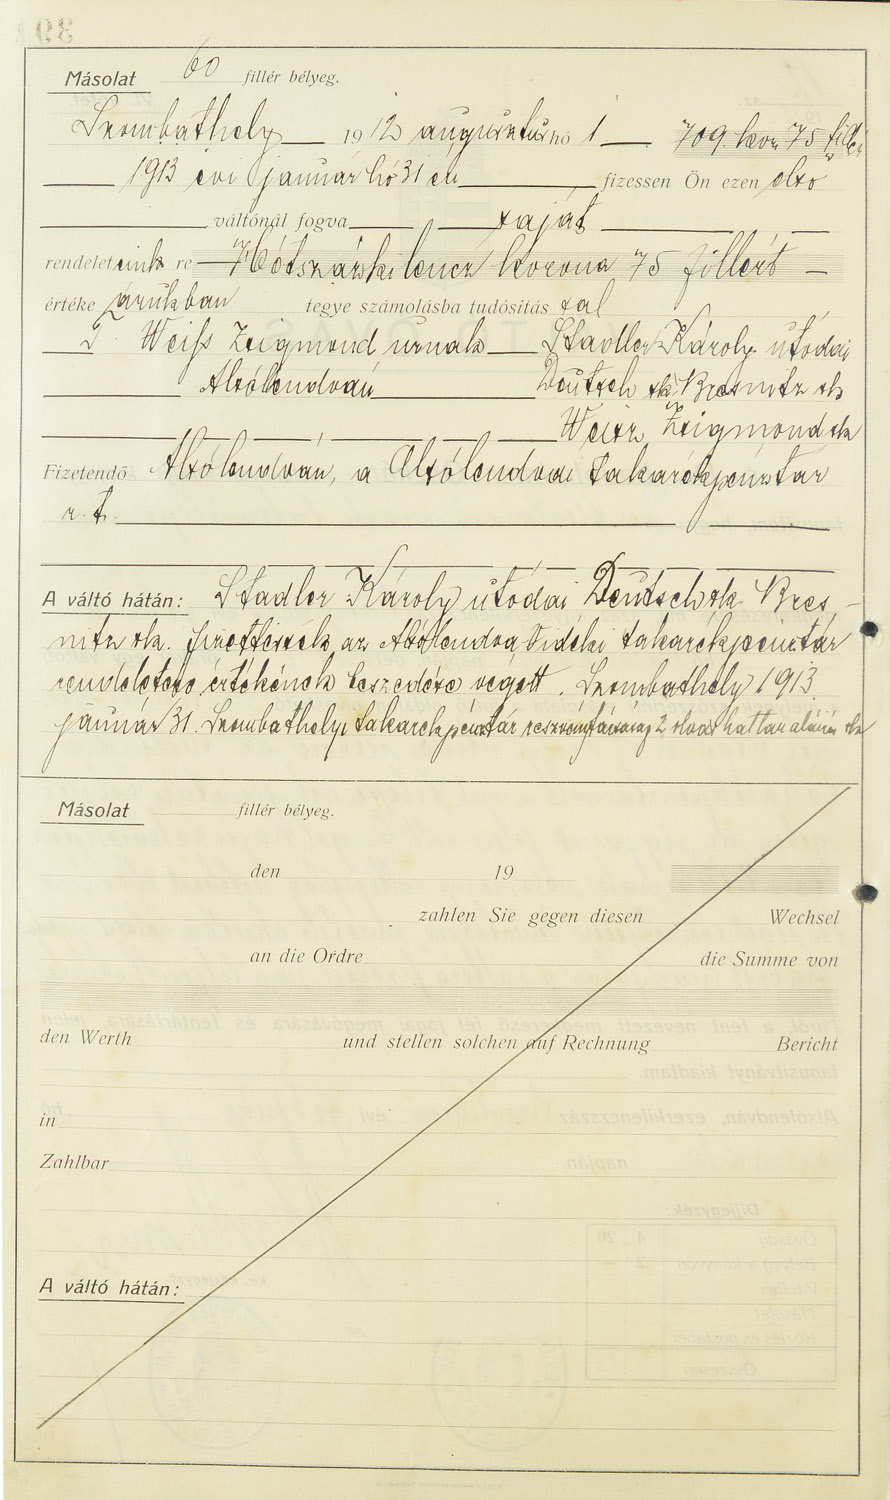 Másolat 60 fillér bélyeg.
Szombathely 1912 augusztus hó 1 709 kor 75 fillér
1913 évi január hó 31 én fizessen Ön ezen első
váltónál fogva saját
rendeletünk re Hétszázkilencz korona 75 fillért
értéke árukban tegye számolásba tudósitás sal
T. Weiss Zsigmond urnak Stadler Károly utódai
Alsólendván Deutsch sk Bresnitz sk
Weisz Zsigmond sk
Fizetendő Alsólendván, a Alsólendvai takarékpénztár
r. t.
A váltó hátán: Stadler Károly utódai Deutsch sk. Bres-
nitz sk. fizettessék az Alsólendva Vidéki takarékpénztár
rendeletére értékének beszedése végett. Szombathely 1913
január 31. Szombathelyi takarékpénztár részvénytársaság 2 olvashatlan aláírás sk
Másolat fillér bélyeg.
den 19
zahlen Sie gegen diesen Wechsel
an die Ordre die Summe von
den Werth und stellen solchen auf Rechnung Bericht
in
Zahlbar
A váltó hátán: